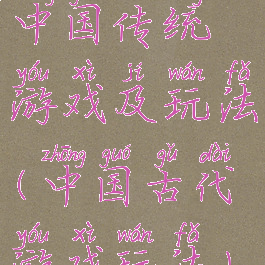 中国传统
yóu xì jí wán fǎ
游戏及玩法
zhōng guó gǔ dài
(中国古代
yóu xì wán fǎ
游戏玩法)